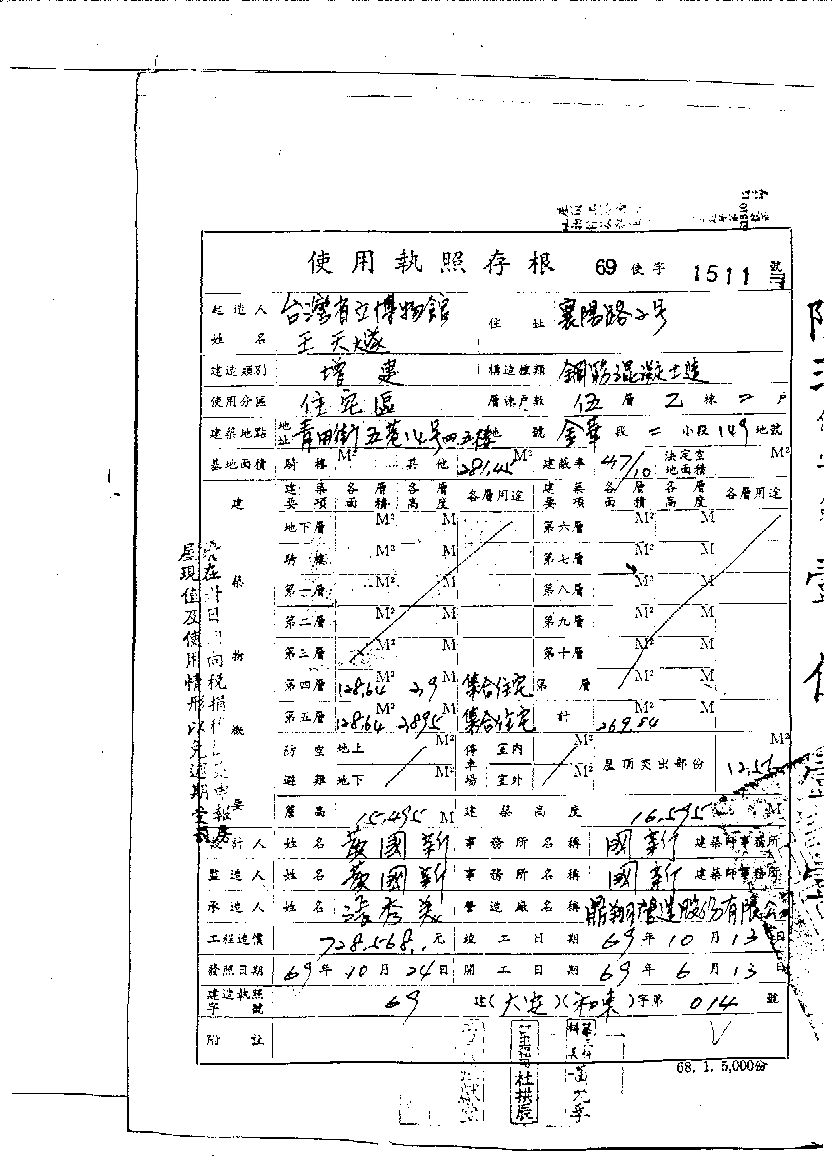 使用執照存根 69使字 1511 號
起造人 台灣省立博物館 住址 襄陽路2号
姓名 王天燧
建造類別 增建 構造種類 鋼筋混凝土造
使用分區 住宅區 層棟戶數 伍層乙棟二戶
建築地點 地址 青田街五巷14号四五樓 地號 金華段二小段149地號
基地面積 騎樓 M² 其他 281.45 M² 建蔽率 47/10 法定空地面積 M²
建築物概要 建築要項 各層面積 各層高度 各層用途 建築要項 各層面積 各層高度 各層用途
地下層 M² M 第六層 M² M
騎樓 M² M 第七層 M² M
第一層 M² M 第八層 M² M
第二層 M² M 第九層 M² M
第三層 M² M 第十層 M² M
第四層 128.64 M² 2.9 M 集合住宅 第 層 M² M
第五層 128.64 M² 2.895 M 集合住宅 計 269.84 M² M
防空 地上 M² 停車場 室內 M² 屋頂突出部份 M²
避難 地下 M² 室外 M² 12.56
簷高 15.495 M 建築高度 16.595 M
設計人 姓名 黃國新 事務所名稱 國新 建築師事務所
監造人 姓名 黃國新 事務所名稱 國新 建築師事務所
承造人 姓名 張秀美 營造廠名稱 鼎翔營造股份有限公
工程造價 728,568. 元 竣工日期 69年10月13日
發照日期 69年10月24日 開工日期 69年6月13日
建造執照字號 69 建(大安)(和東)字第 014 號
附註
68. 1. 5,000份
杜拱辰